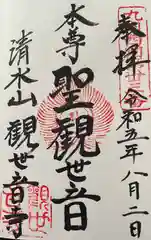 奉拝
令和五年八月二日
本尊
聖観世音
清水山
観世音寺